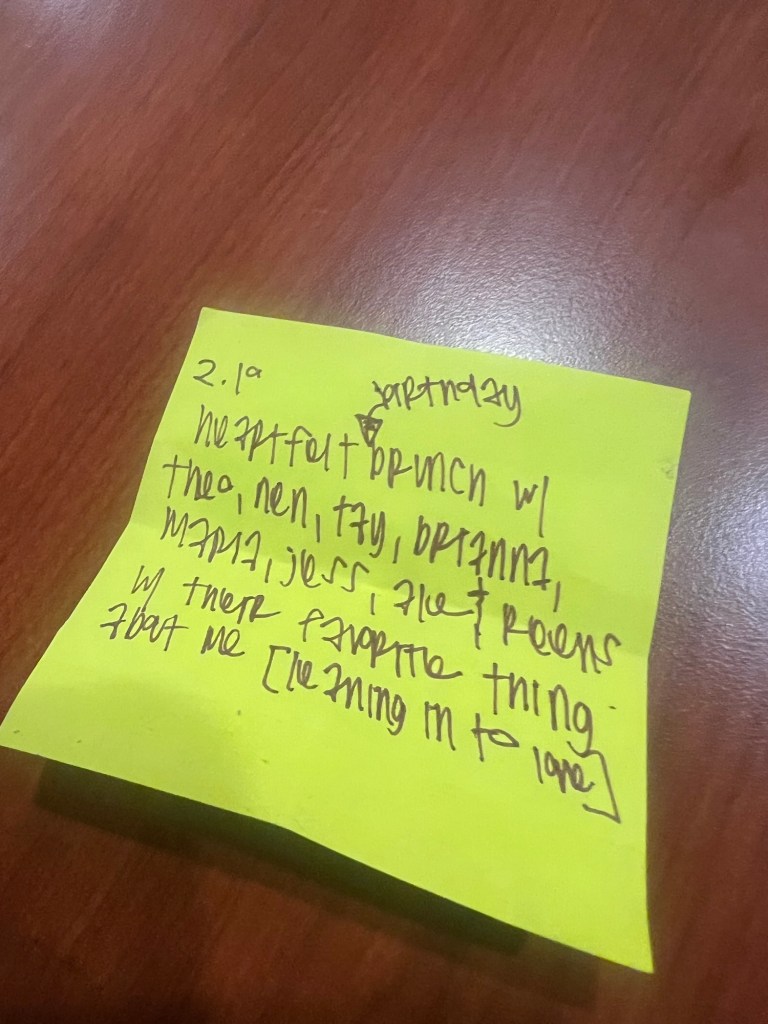 2.1a
birthday
heartfelt brunch w/
theo, nen, tay, brianna,
maria, jess, alie & keens
w/ their favorite thing
about me [leaning in to love]